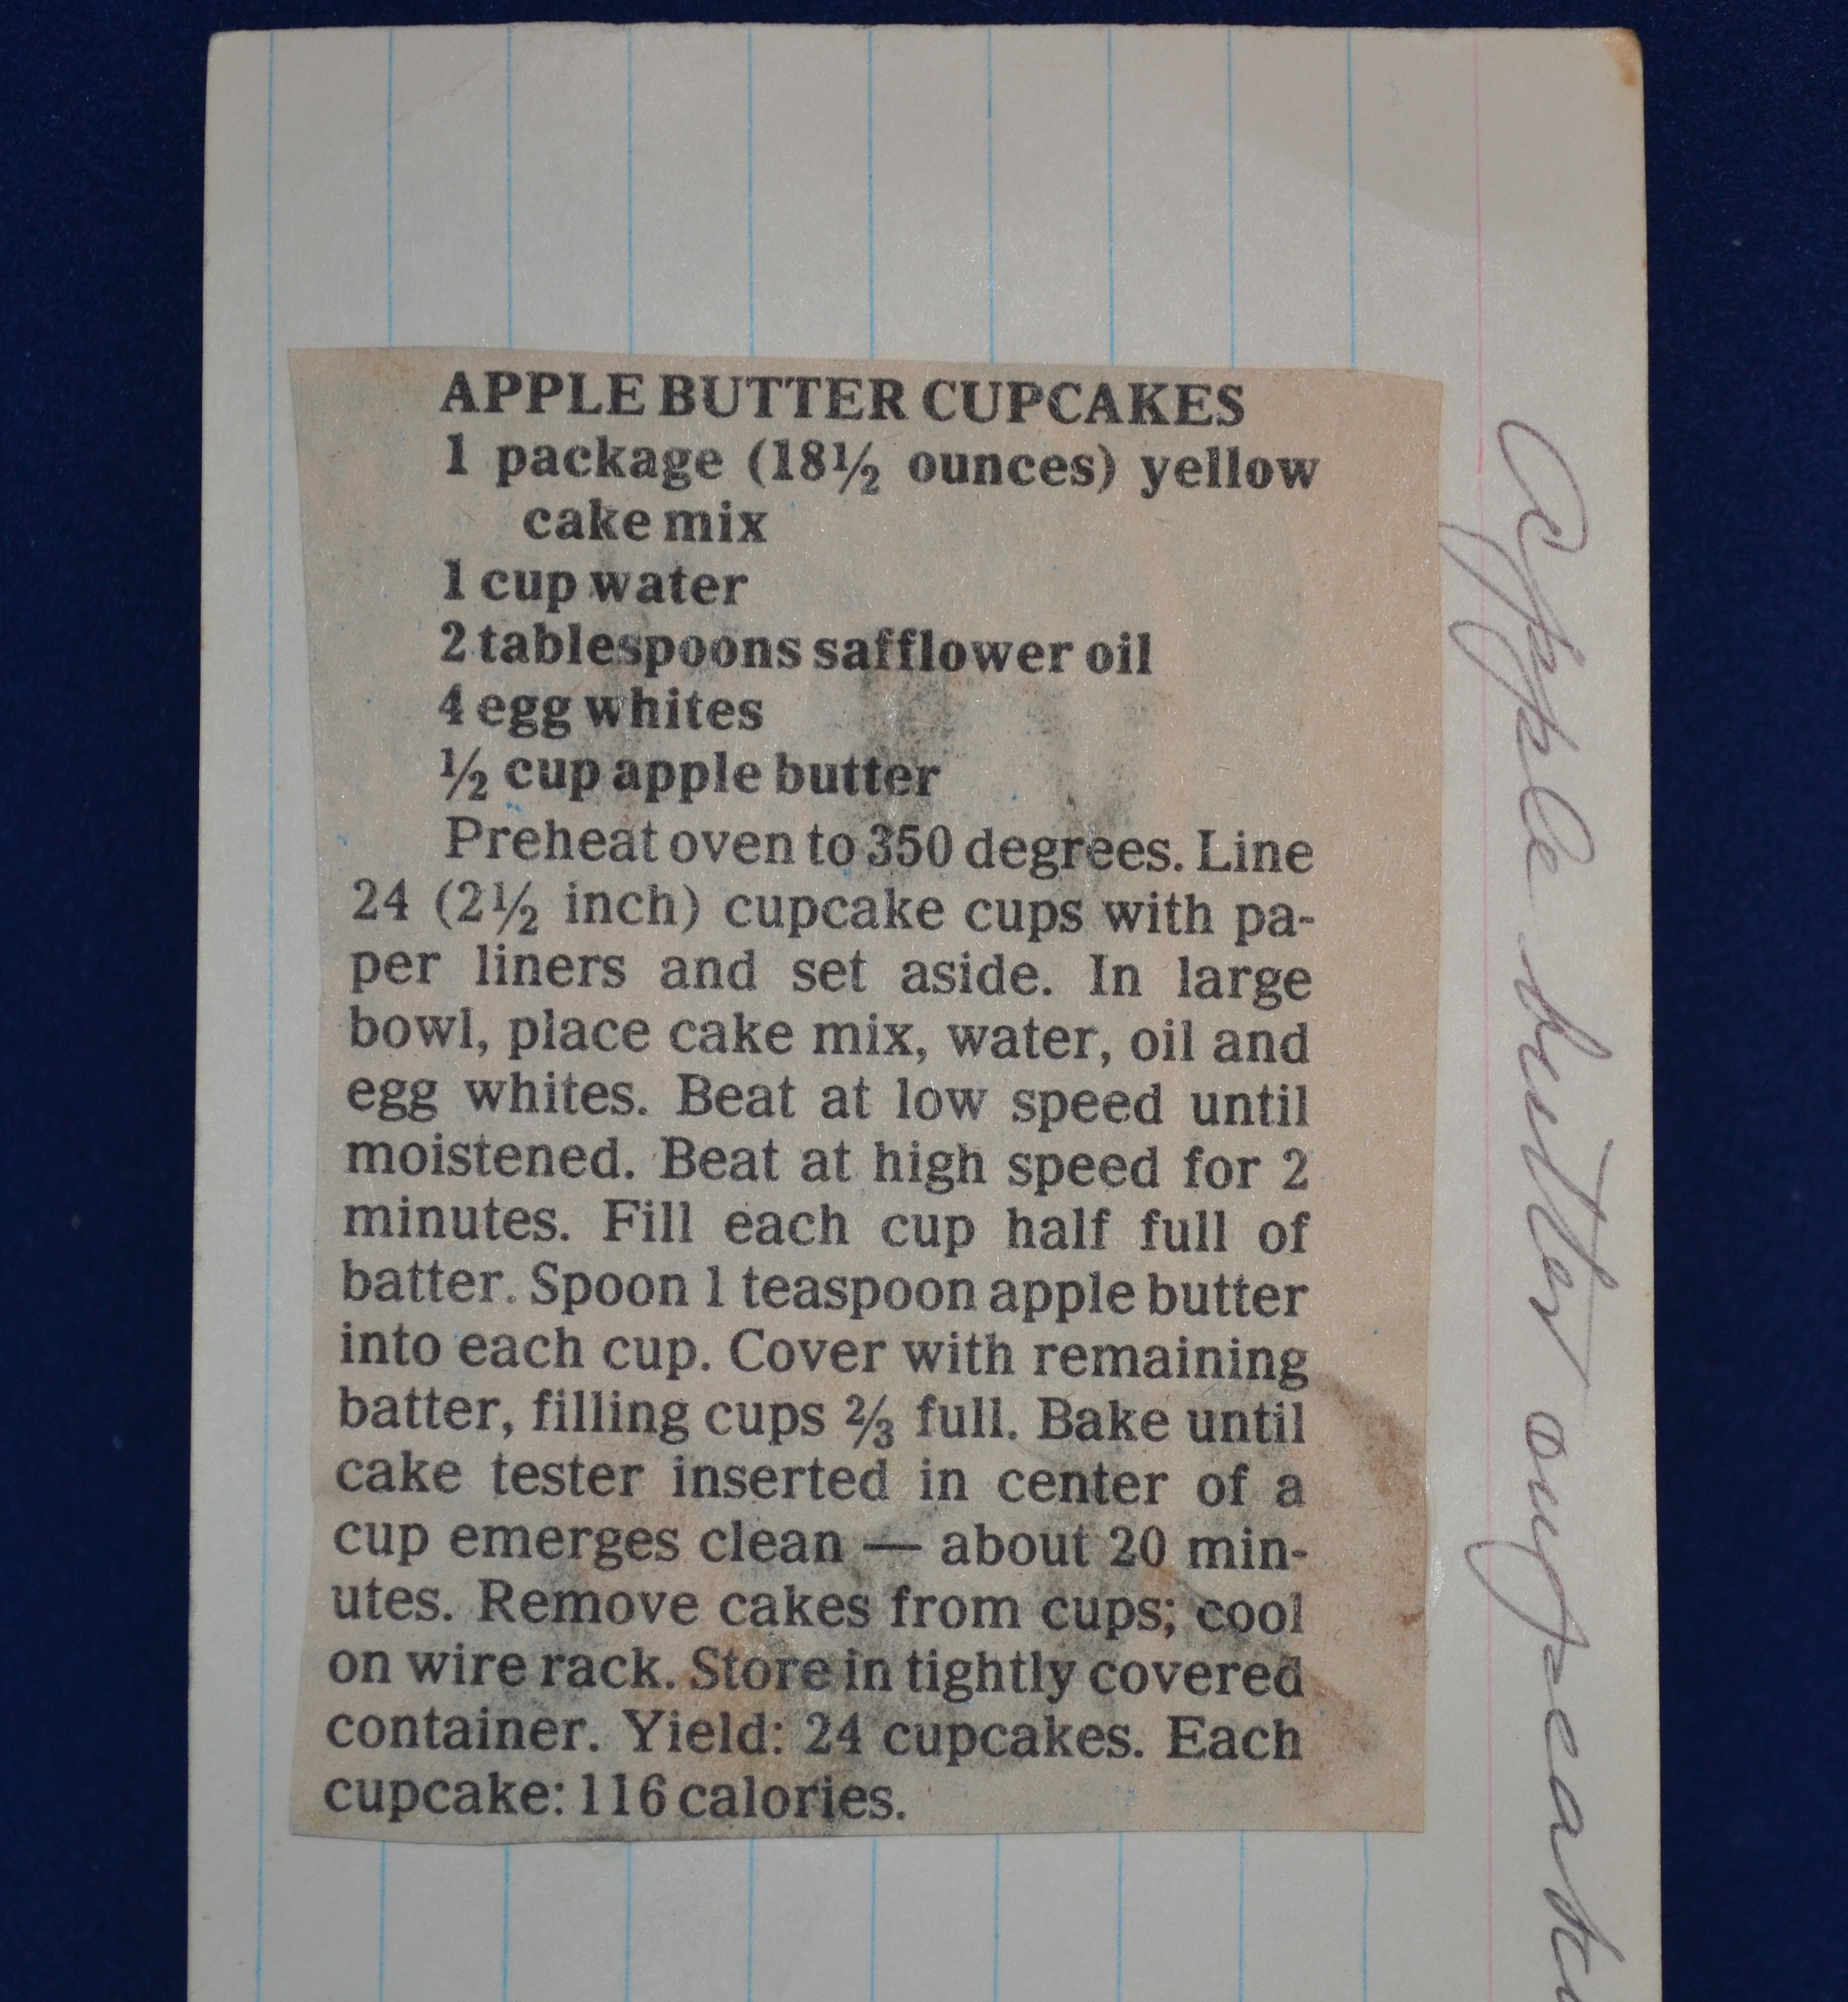 APPLE BUTTER CUPCAKES
1 package (18½ ounces) yellow
cake mix
1 cup water
2 tablespoons safflower oil
4 egg whites
½ cup apple butter
Preheat oven to 350 degrees. Line
24 (2½ inch) cupcake cups with pa-
per liners and set aside. In large
bowl, place cake mix, water, oil and
egg whites. Beat at low speed until
moistened. Beat at high speed for 2
minutes. Fill each cup half full of
batter. Spoon 1 teaspoon apple butter
into each cup. Cover with remaining
batter, filling cups ⅔ full. Bake until
cake tester inserted in center of a
cup emerges clean — about 20 min-
utes. Remove cakes from cups; cool
on wire rack. Store in tightly covered
container. Yield: 24 cupcakes. Each
cupcake: 116 calories.
Apple butter